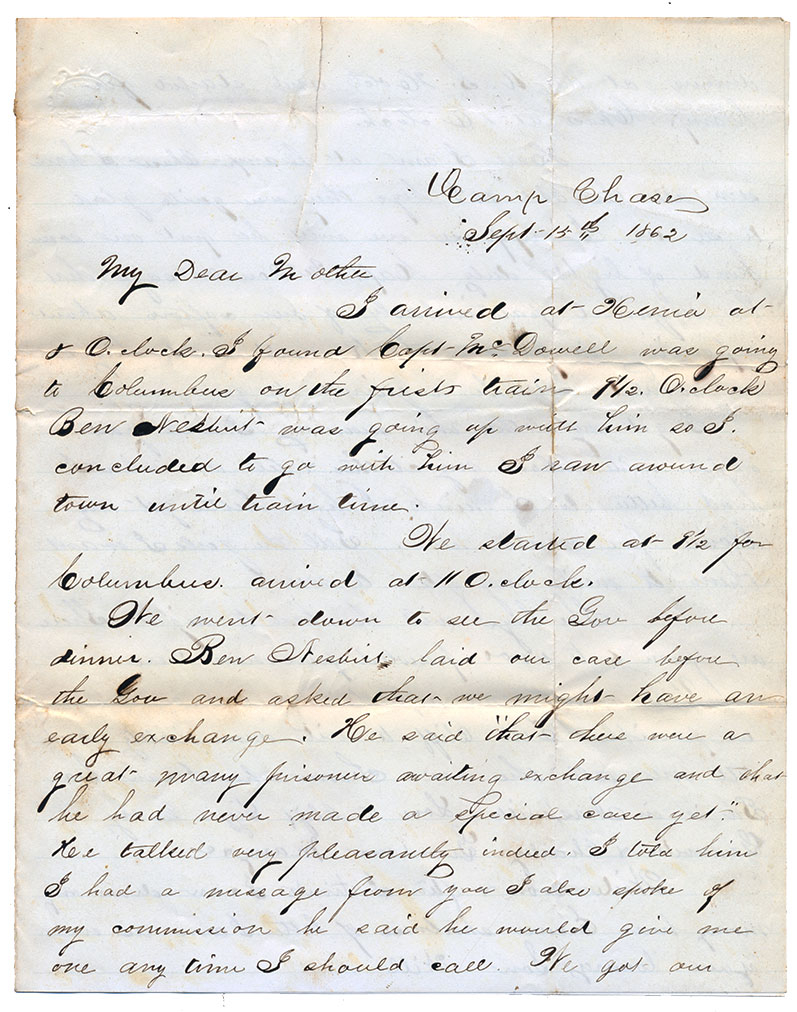 Camp Chase
Sept 15th 1862
My Dear Mother
I arrived at Xenia at
8 O.clock. I found Capt Mc.Dowell was going
to Columbus on the frist train 9 1/2. O.clock
Ben Nesbit was going up with him so I.
concluded to go with him I ran around
town until train time.
We started at 9 1/2 for
Columbus. arrived at 11 O.clock.
We went down to see the Gov before
dinner. Ben Nesbitt laid our case before
the Gov and asked that we might have an
early exchange. He said "that there were a
great many prisoner awaiting exchange and that
he had never made a special case yet."
He talked very pleasantly indeed. I told him
I had a message from you I also spoke of
my commission he said he would give me
one any time I should call. We got our